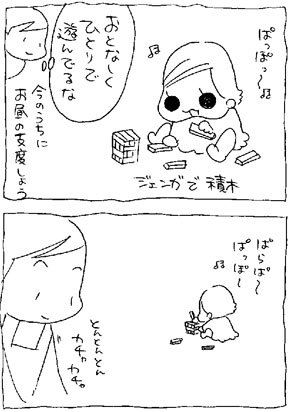 ぱっぽっ〜♫
おとなしく
ひとりで
遊んでるな
今のうちに
お昼の支度しよう
ジェンガで積木
ばらぱ〜
ぱっぽ〜
♫
とんとんとん
カチャカチャ